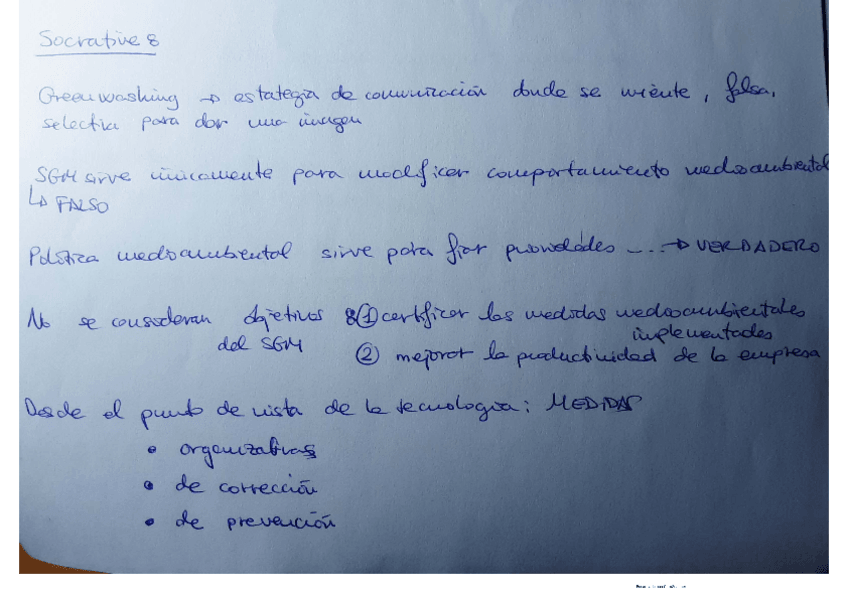 Socrative 8
Greenwashing → estrategia de comunicación donde se miente, falsa,
selectiva para dar una imagen
SGM sirve únicamente para modificar comportamiento medioambiental
↳ FALSO
Política medioambiental sirve para fijar prioridades ... → VERDADERO
No se consideran objetivos ① certificar las medidas medioambientales
implementades
del SGM
② mejorar la productividad de la empresa
Desde el punto de vista de la tecnología: MEDIDAS
• organizativas
• de corrección
• de prevención